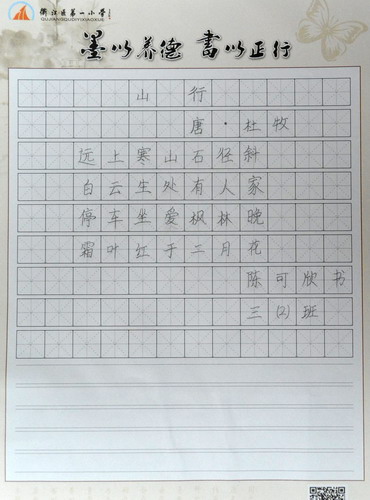 衢江区第一小学
QUJIANGQUDIYIXIAOXUE
墨以养德 书以正行
山行
唐·杜牧
远上寒山石径斜
白云生处有人家
停车坐爱枫林晚
霜叶红于二月花
陈可欣书
三(2)班